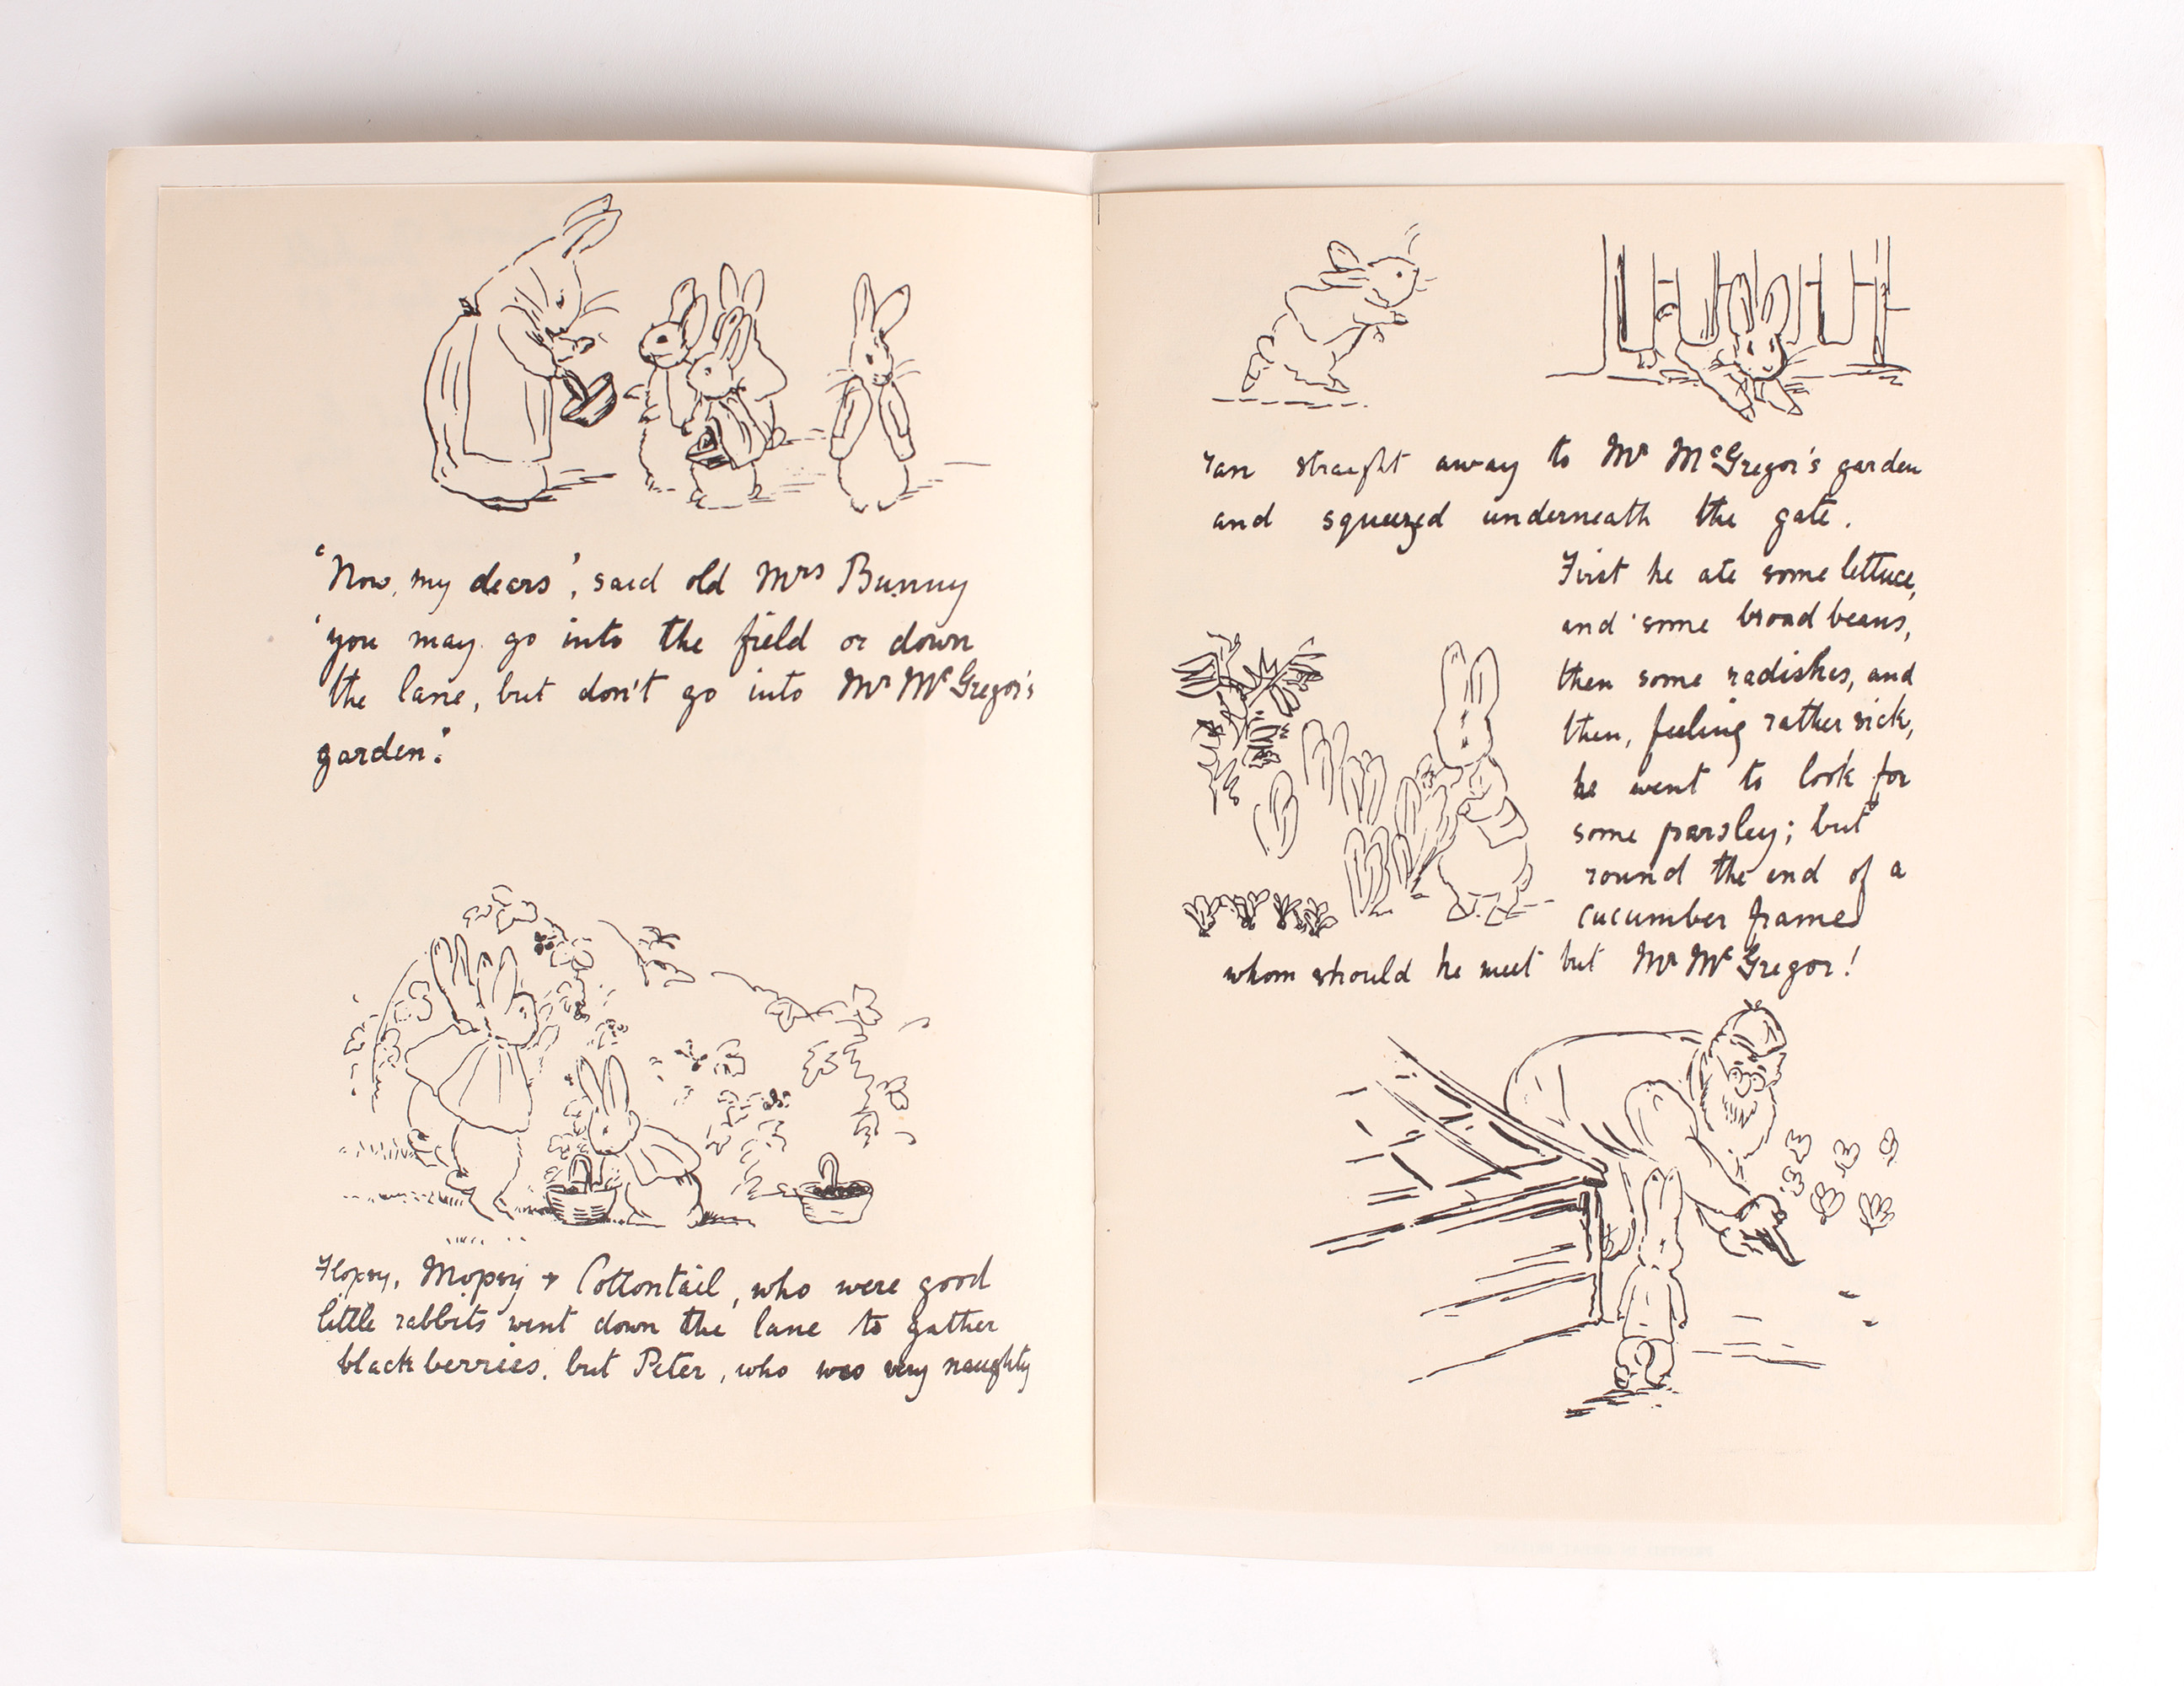 'Now, my dears', said old Mrs Bunny
'you may go into the field or down
the lane, but don't go into Mr McGregor's
garden.'
Flopsy, Mopsy + Cottontail, who were good
little rabbits went down the lane to gather
blackberries, but Peter, who was very naughty
ran straight away to Mr McGregor's garden
and squeezed underneath the gate.
First he ate some lettuce,
and some broad beans,
then some radishes, and
then, feeling rather sick,
he went to look for
some parsley; but
round the end of a
cucumber frame
whom should he meet but Mr McGregor!